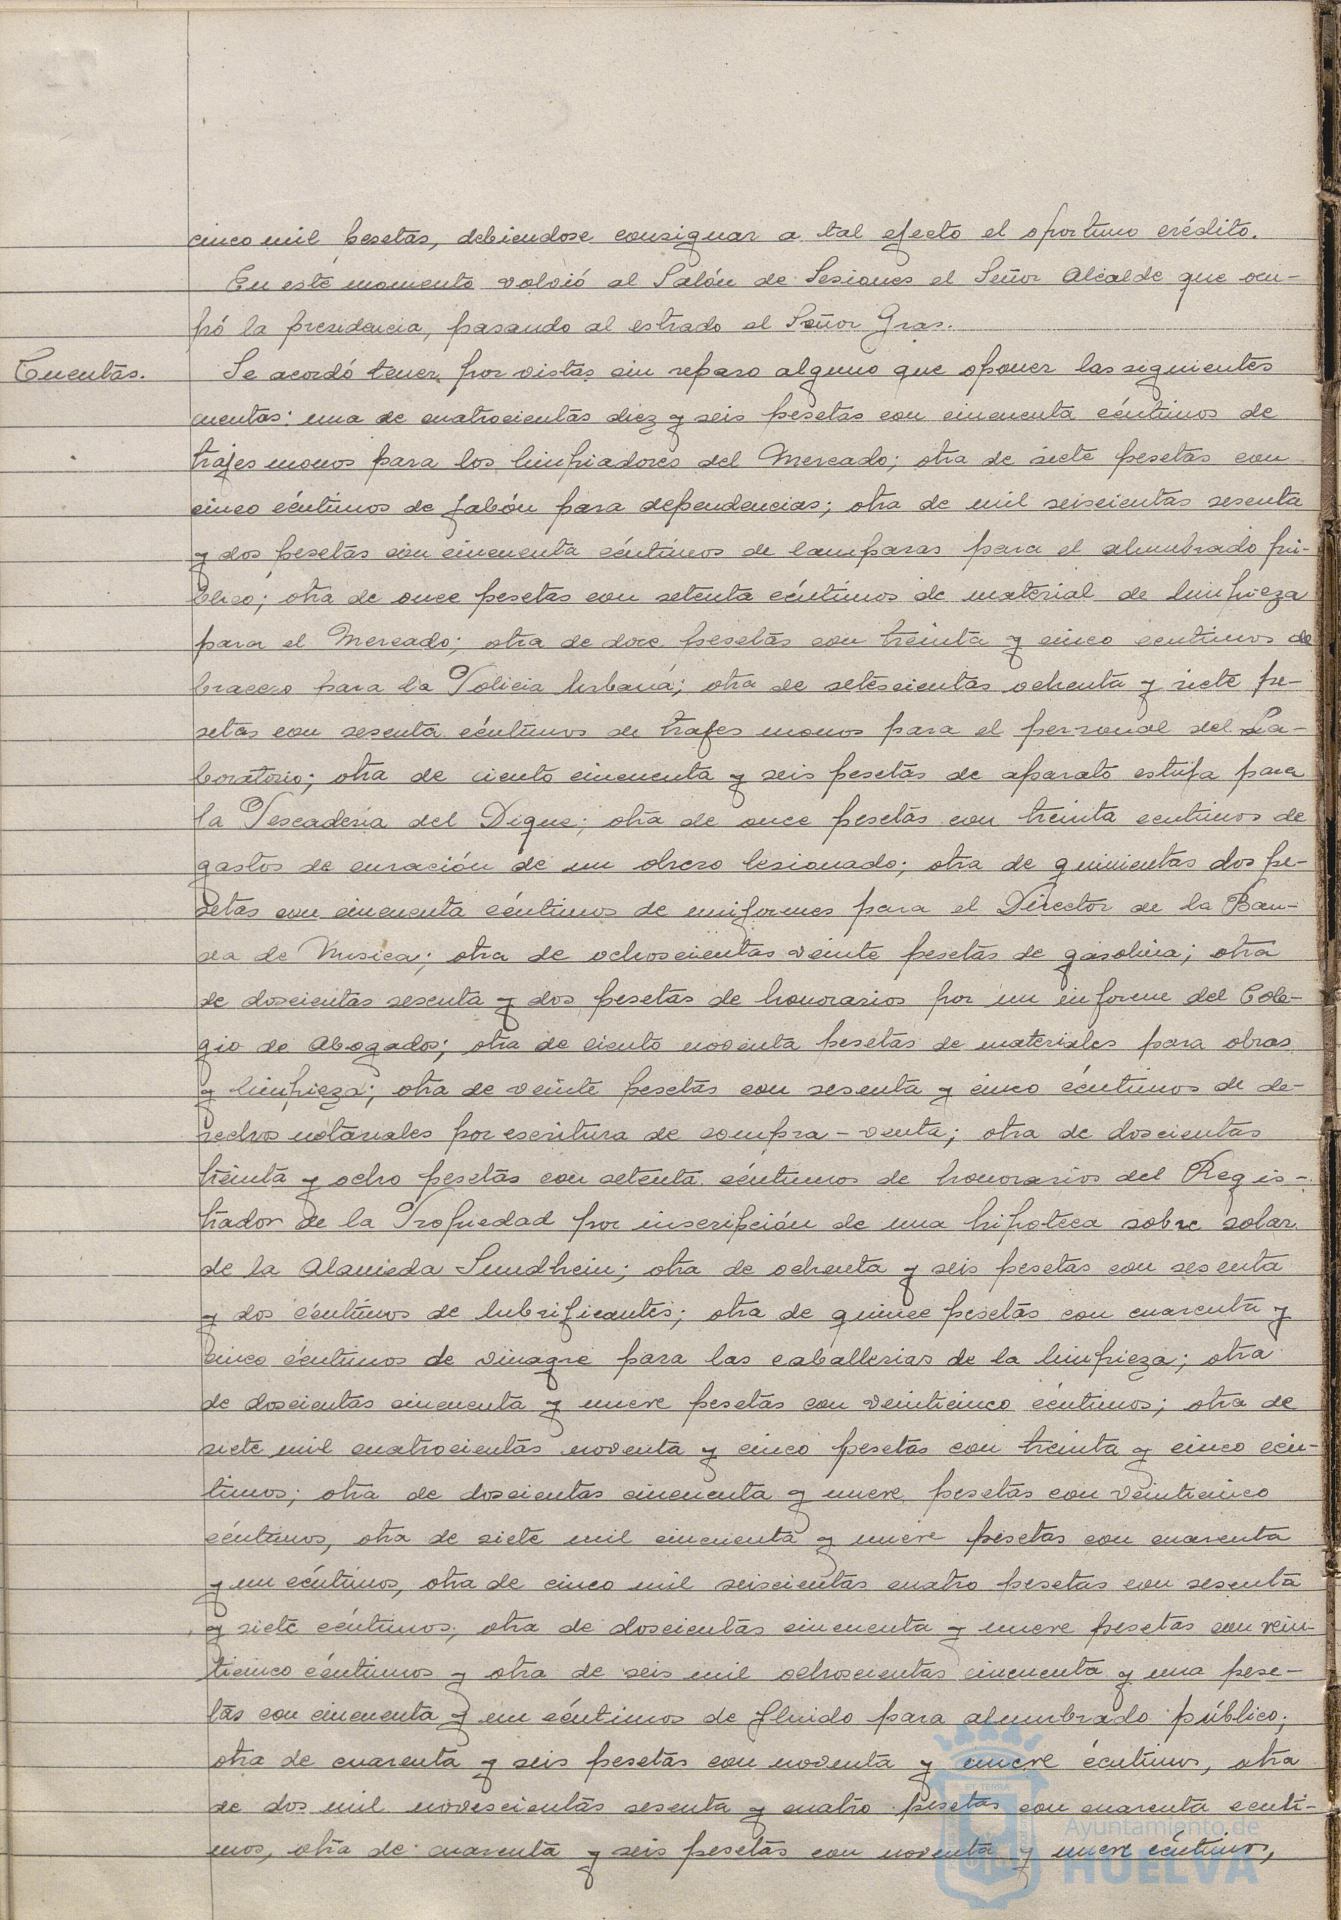 cinco mil pesetas, debiendose consignar a tal efecto el oportuno crédito.
En este momento volvió al Salón de Sesiones el Señor Alcalde que ocu-
pó la presidencia, pasando al estrado el Señor Gras.
Cuentas.
Se acordó tener por vistas sin reparo alguno que oponer las siguientes
cuentas: una de cuatrocientas diez y seis pesetas con cincuenta céntimos de
trajes monos para los limpiadores del Mercado; otra de siete pesetas con
cinco céntimos de jabón para dependencias; otra de mil seiscientas sesenta
y dos pesetas con cincuenta céntimos de lamparas para el alumbrado pú-
blico; otra de once pesetas con setenta céntimos de material de limpieza
para el Mercado; otra de doce pesetas con treinta y cinco centimos de
para la Policia Urbana; otra de setescientas ochenta y siete pe-
setas con sesenta céntimos de trajes monos para el personal del La-
boratorio; otra de ciento cincuenta y seis pesetas de aparato estufa para
la Pescaderia del Dique; otra de once pesetas con treinta centimos de
gastos de curación de un obrero lesionado; otra de quinientas dos pe-
setas con cincuenta céntimos de uniformes para el Director de la Ban-
da de Musica; otra de ochoscientas veinte pesetas de gasolina; otra
de doscientas sesenta y dos pesetas de honorarios por un informe del Cole-
gio de Abogados; otra de ciento noventa pesetas de materiales para obras
y limpieza; otra de veinte pesetas con sesenta y cinco céntimos de de-
rechos notariales por escritura de compra-venta; otra de doscientas
treinta y ocho pesetas con setenta céntimos de honorarios del Regis-
trador de la Propiedad por inscripción de una hipoteca sobre solar
de la Alameda Sundhein; otra de ochenta y seis pesetas con sesenta
y dos céntimos de lubrificantes; otra de quince pesetas con cuarenta y
cinco céntimos de vinagre para las caballerias de la limpieza; otra
de doscientas cincuenta y nueve pesetas con veinticinco céntimos; otra de
siete mil cuatrocientas noventa y cinco pesetas con treinta y cinco cén-
timos; otra de doscientas cincuenta y nueve pesetas con veinticinco
céntimos, otra de siete mil cincuenta y nueve pesetas con cuarenta
y un céntimos, otra de cinco mil seiscientas cuatro pesetas con sesenta
y siete céntimos, otra de doscientas cincuenta y nueve pesetas con vein-
ticinco céntimos y otra de seis mil ochoscientas cincuenta y una pese-
tas con cincuenta y un céntimos de fluido para alumbrado público;
otra de cuarenta y seis pesetas con noventa y nueve céntimos, otra
de dos mil novescientas sesenta y cuatro pesetas con cuarenta centi-
mos, otra de cuarenta y seis pesetas con noventa y nueve céntimos,
Ayuntamiento de
HUELVA